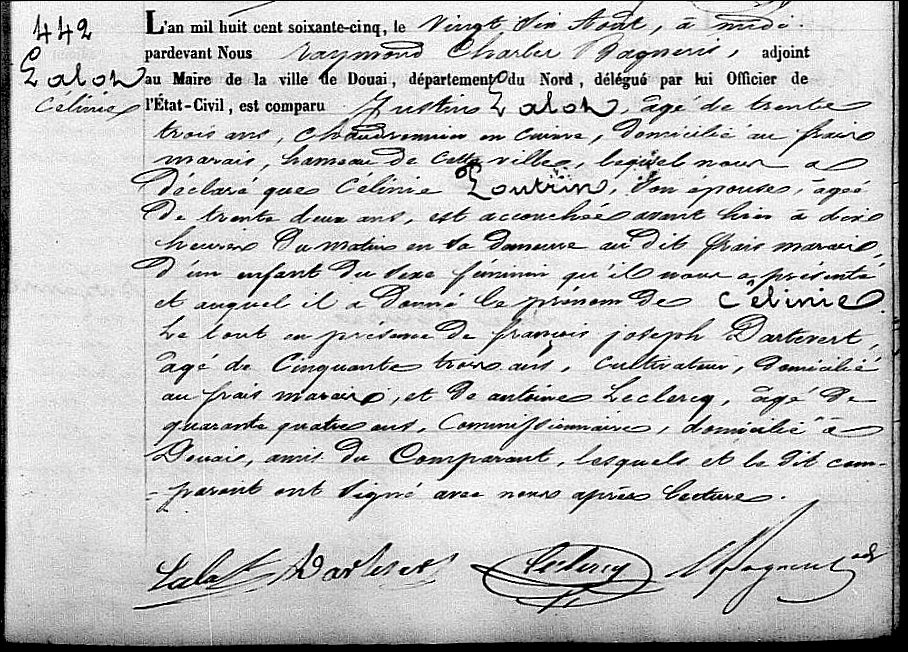 442
Lalou
Célinie
L'an mil huit cent soixante-cinq, le vingt six Août, à midi
pardevant Nous Raymond Charles Bagneris, adjoint
au Maire de la ville de Douai, département du Nord, délégué par lui Officier de
l'État-Civil, est comparu Justin Lalou, âgé de trente
trois ans, chaudronnier en cuivre, domicilié au frais
marais, hameau de cette ville, lequel nous a
déclaré que Célinie Loutrin, son épouse, âgée
de trente deux ans, est accouchée avant hier à dix
heures du matin en sa demeure au dit frais marais,
d'un enfant du sexe féminin qu'il nous a présenté
et auquel il a donné le prénom de Célinie
Le tout en présence de françois joseph Dartevert,
âgé de Cinquante trois ans, Cultivateur, domicilié
au frais marais, et de antoine Leclercq, âgé de
quarante quatre ans, Commissionnaire, domicilié à
Douai, amis du Comparant, lesquels et le dit com-
-parant ont signé avec nous après lecture.
Leclercq